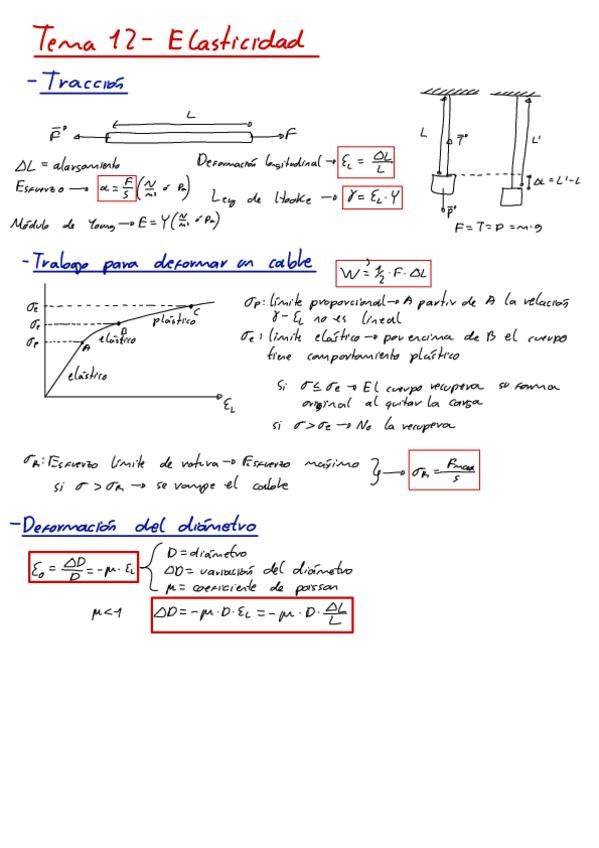 Tema 12 - Elasticidad
- Tracción
L
F⃗ F
ΔL = alargamiento
Deformación longitudinal → ε_L = ΔL/L
Esfuerzo → α = F/S (N/m² ó Pa)
Ley de Hooke → γ = ε_L · Y
Módulo de Young → E = Y (N/m² ó Pa)
L T⃗ L'
ΔL = L' - L
P⃗
F = T = P = m·g
- Trabajo para deformar un cable
W = 1/2 · F · ΔL
σe C
σe B plástico
σp A elástico
elástico
ε_L
σp: límite proporcional → A partir de A la relación
γ - ε_L no es lineal
σe: límite elástico → por encima de B el cuerpo
tiene comportamiento plástico
Si σ ≤ σe → El cuerpo recupera su forma
original al quitar la carga
si σ > σe → No la recupera
σR: Esfuerzo límite de rotura → Esfuerzo máximo } → σR = Fmax/S
si σ > σR → se rompe el cable
- Deformación del diámetro
ε_D = ΔD/D = -μ · ε_L
D = diámetro
ΔD = variación del diámetro
μ = coeficiente de poisson
μ < 1
ΔD = -μ · D · ε_L = -μ · D · ΔL/L